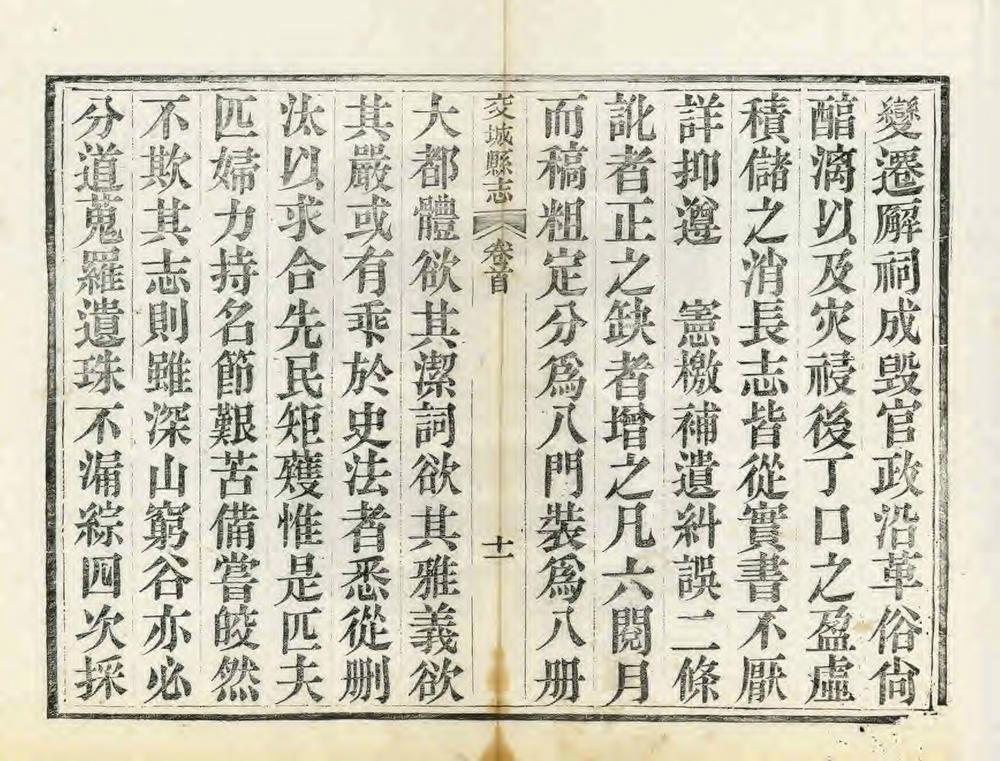 變遷廨祠成毁官政沿革俗尙
醕漓以及灾祲後丁口之盈虛
積儲之消長志皆從實書不厭
詳抑遵　憲檄補遺糾誤二條
訛者正之缺者增之凡六閱月
而稿粗定分爲八門裝爲八册
交城縣志　卷首　十一
大都體欲其潔詞欲其雅義欲
其嚴或有乖於史法者悉從删
汰以求合先民矩矱惟是匹夫
匹婦力持名節艱苦備嘗皎然
不欺其志則雖深山窮谷亦必
分道蒐羅遺珠不漏綜四次採